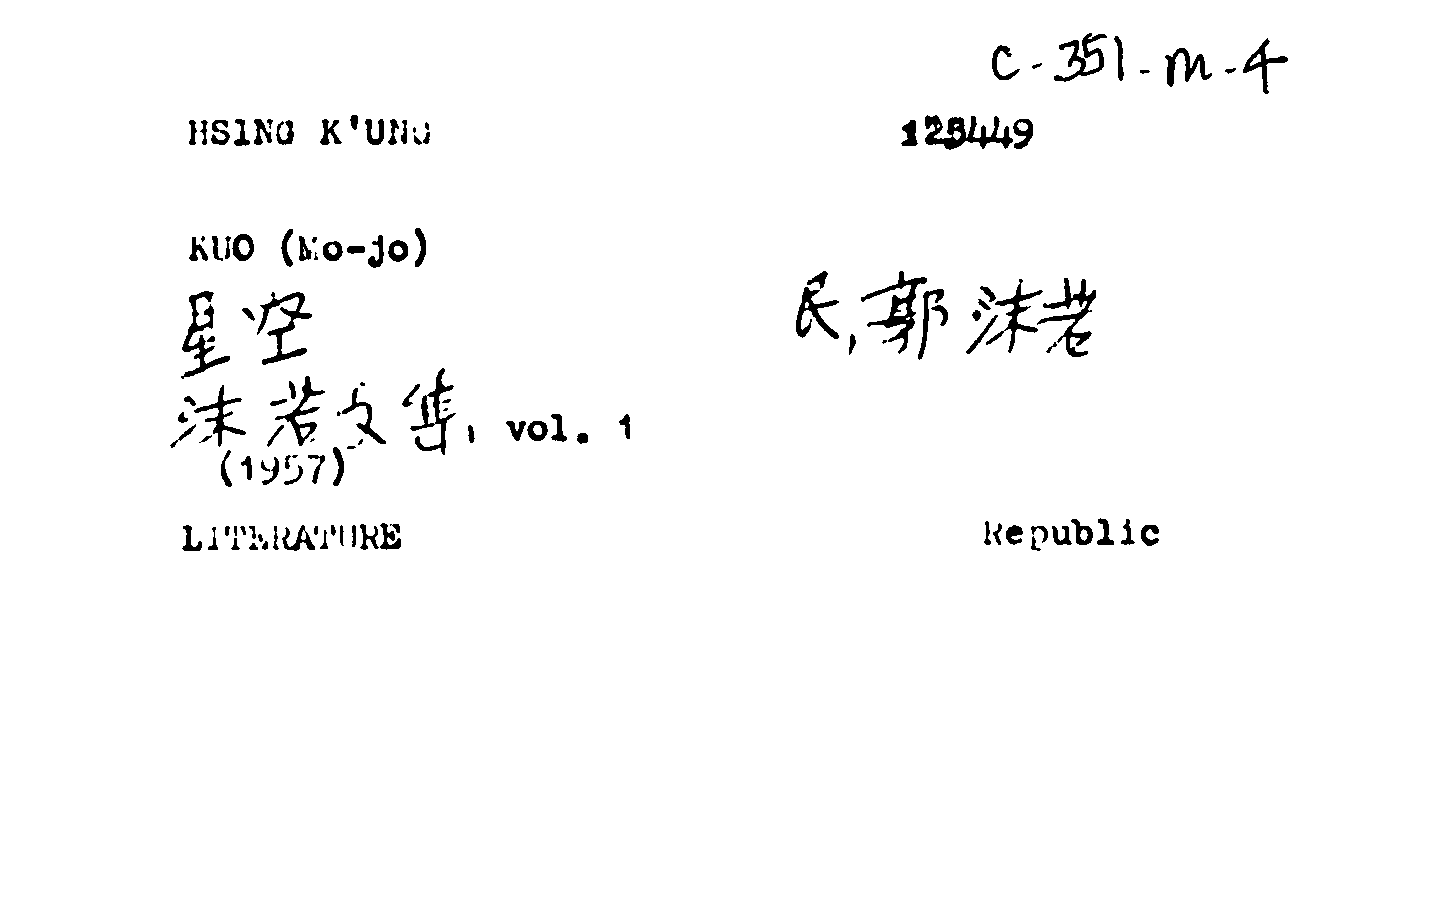 C-351-M-4
HSING K'UNG 125449
KUO (Mo-jo)
星空 民,郭沫若
沫若文集, vol. 1
(1957)
LITERATURE Republic